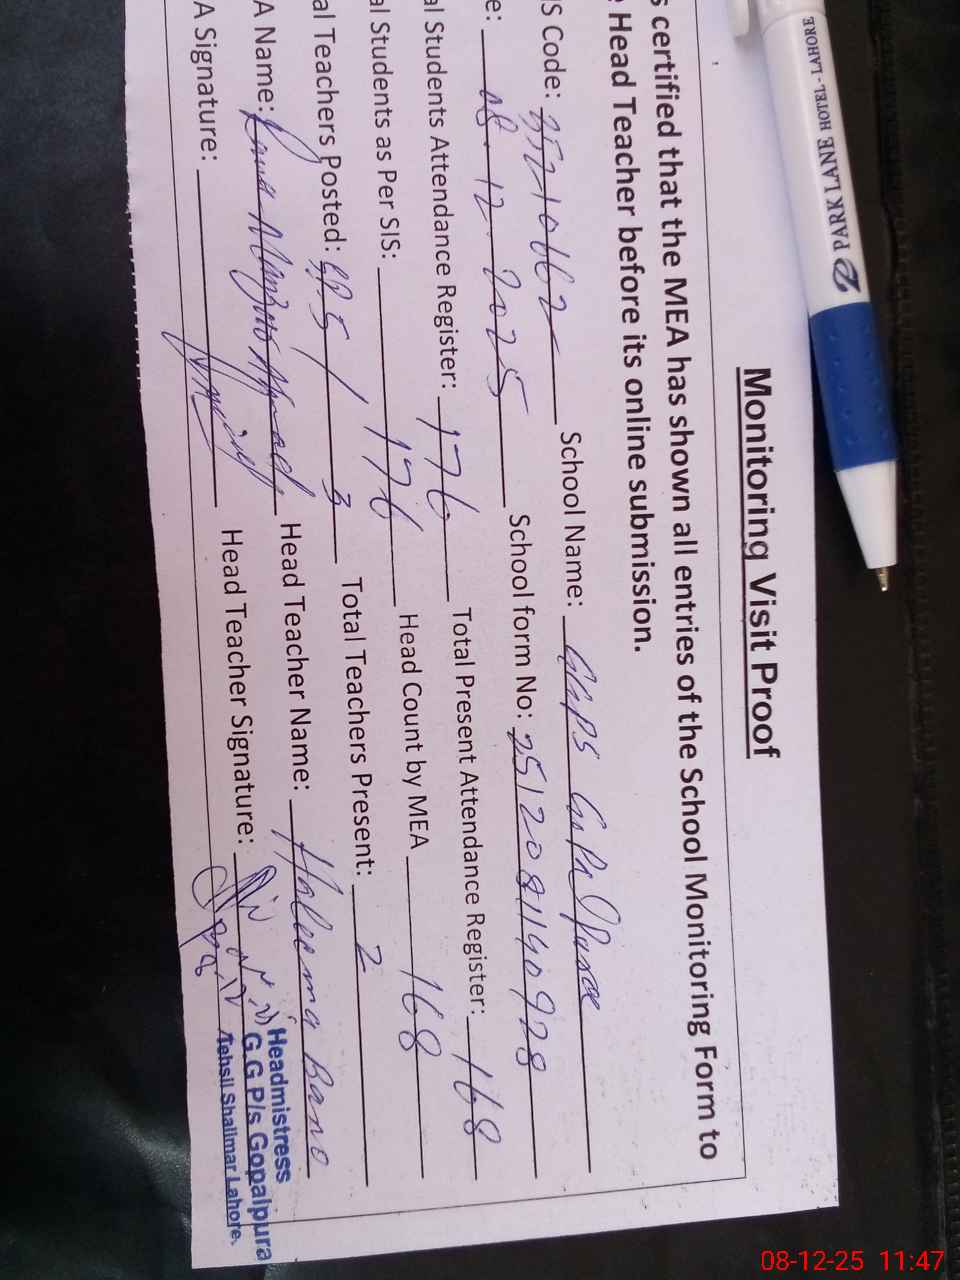 Monitoring Visit Proof
s certified that the MEA has shown all entries of the School Monitoring Form to
Head Teacher before its online submission.
IS Code: 35210662 School Name: GGPS Gopal Pura
e: 08.12.2025 School form No: 251208140928
al Students Attendance Register: 176 Total Present Attendance Register: 168
al Students as Per SIS: 176 Head Count by MEA 168
al Teachers Posted: 5 / 3 Total Teachers Present: 2
A Name: Head Teacher Name: Haleema Bano
A Signature: Head Teacher Signature:
Headmistress
G.G P/s Gopalpura
Tehsil Shalimar Lahore.
PARK LANE HOTEL - LAHORE
08-12-25 11:47